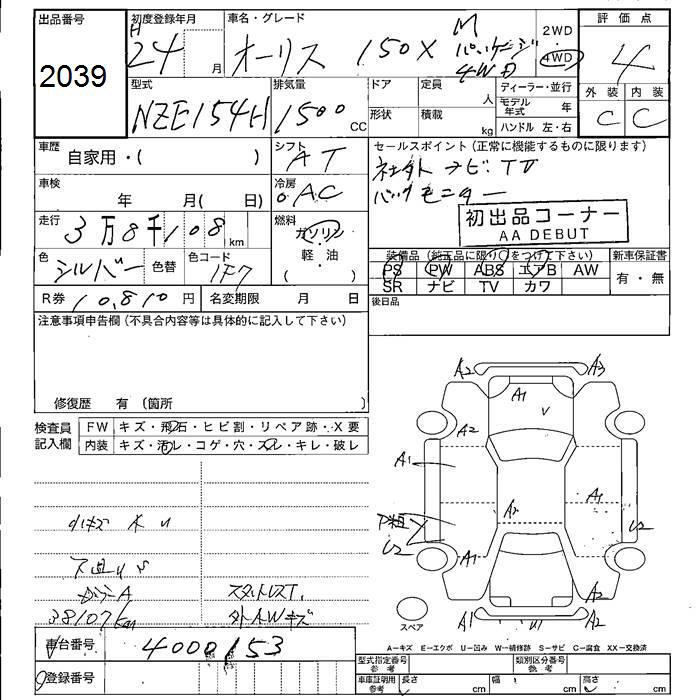 出品番号
2039
初度登録年月
H
24 月
車名・グレード
オーリス 150X M
パッケージ
4WD
2WD
4WD
評価点
4
外装 内装
C C
型式
NZE154H
排気量
1500 CC
ドア
形状
定員
人
積載
kg
ディーラー・並行
モデル年式 年
ハンドル 左・右
車歴
自家用・( )
シフト
AT
セールスポイント(正常に機能するものに限ります)
社外ナビTV
バックモニター
車検
年 月( 日)
冷房
AC
初出品コーナー
AA DEBUT
走行
3万8千108 km
燃料
ガソリン
軽・油
色
シルバー
色替
色コード
1F7
装備品(純正品に限り○をつけて下さい)
PS PW ABS エアB AW
SR ナビ TV カワ
新車保証書
有・無
R券 10,810 円
名変期限 月 日
後日品
注意事項申告欄(不具合内容等は具体的に記入して下さい)
修復歴 有 (箇所 )
検査員記入欄
FW キズ・飛石・ヒビ割・リペア跡・X要
内装 キズ・汚レ・コゲ・穴・スレ・キレ・破レ
A2 A3
A1
A2
A1
A1
U2
A1
U2
A1
A2
A1 U1 A2
スペア
小キズ
38107km
スタットレスT.
外人Wキズ
車台番号 4000153
登録番号
A−キズ E−エクボ U−凹み W−補修跡 S−サビ C−腐食 XX−交換済
型式指定番号
参考
類別区分番号
参考
車庫証明用
参考
長さ cm 幅 cm 高さ cm